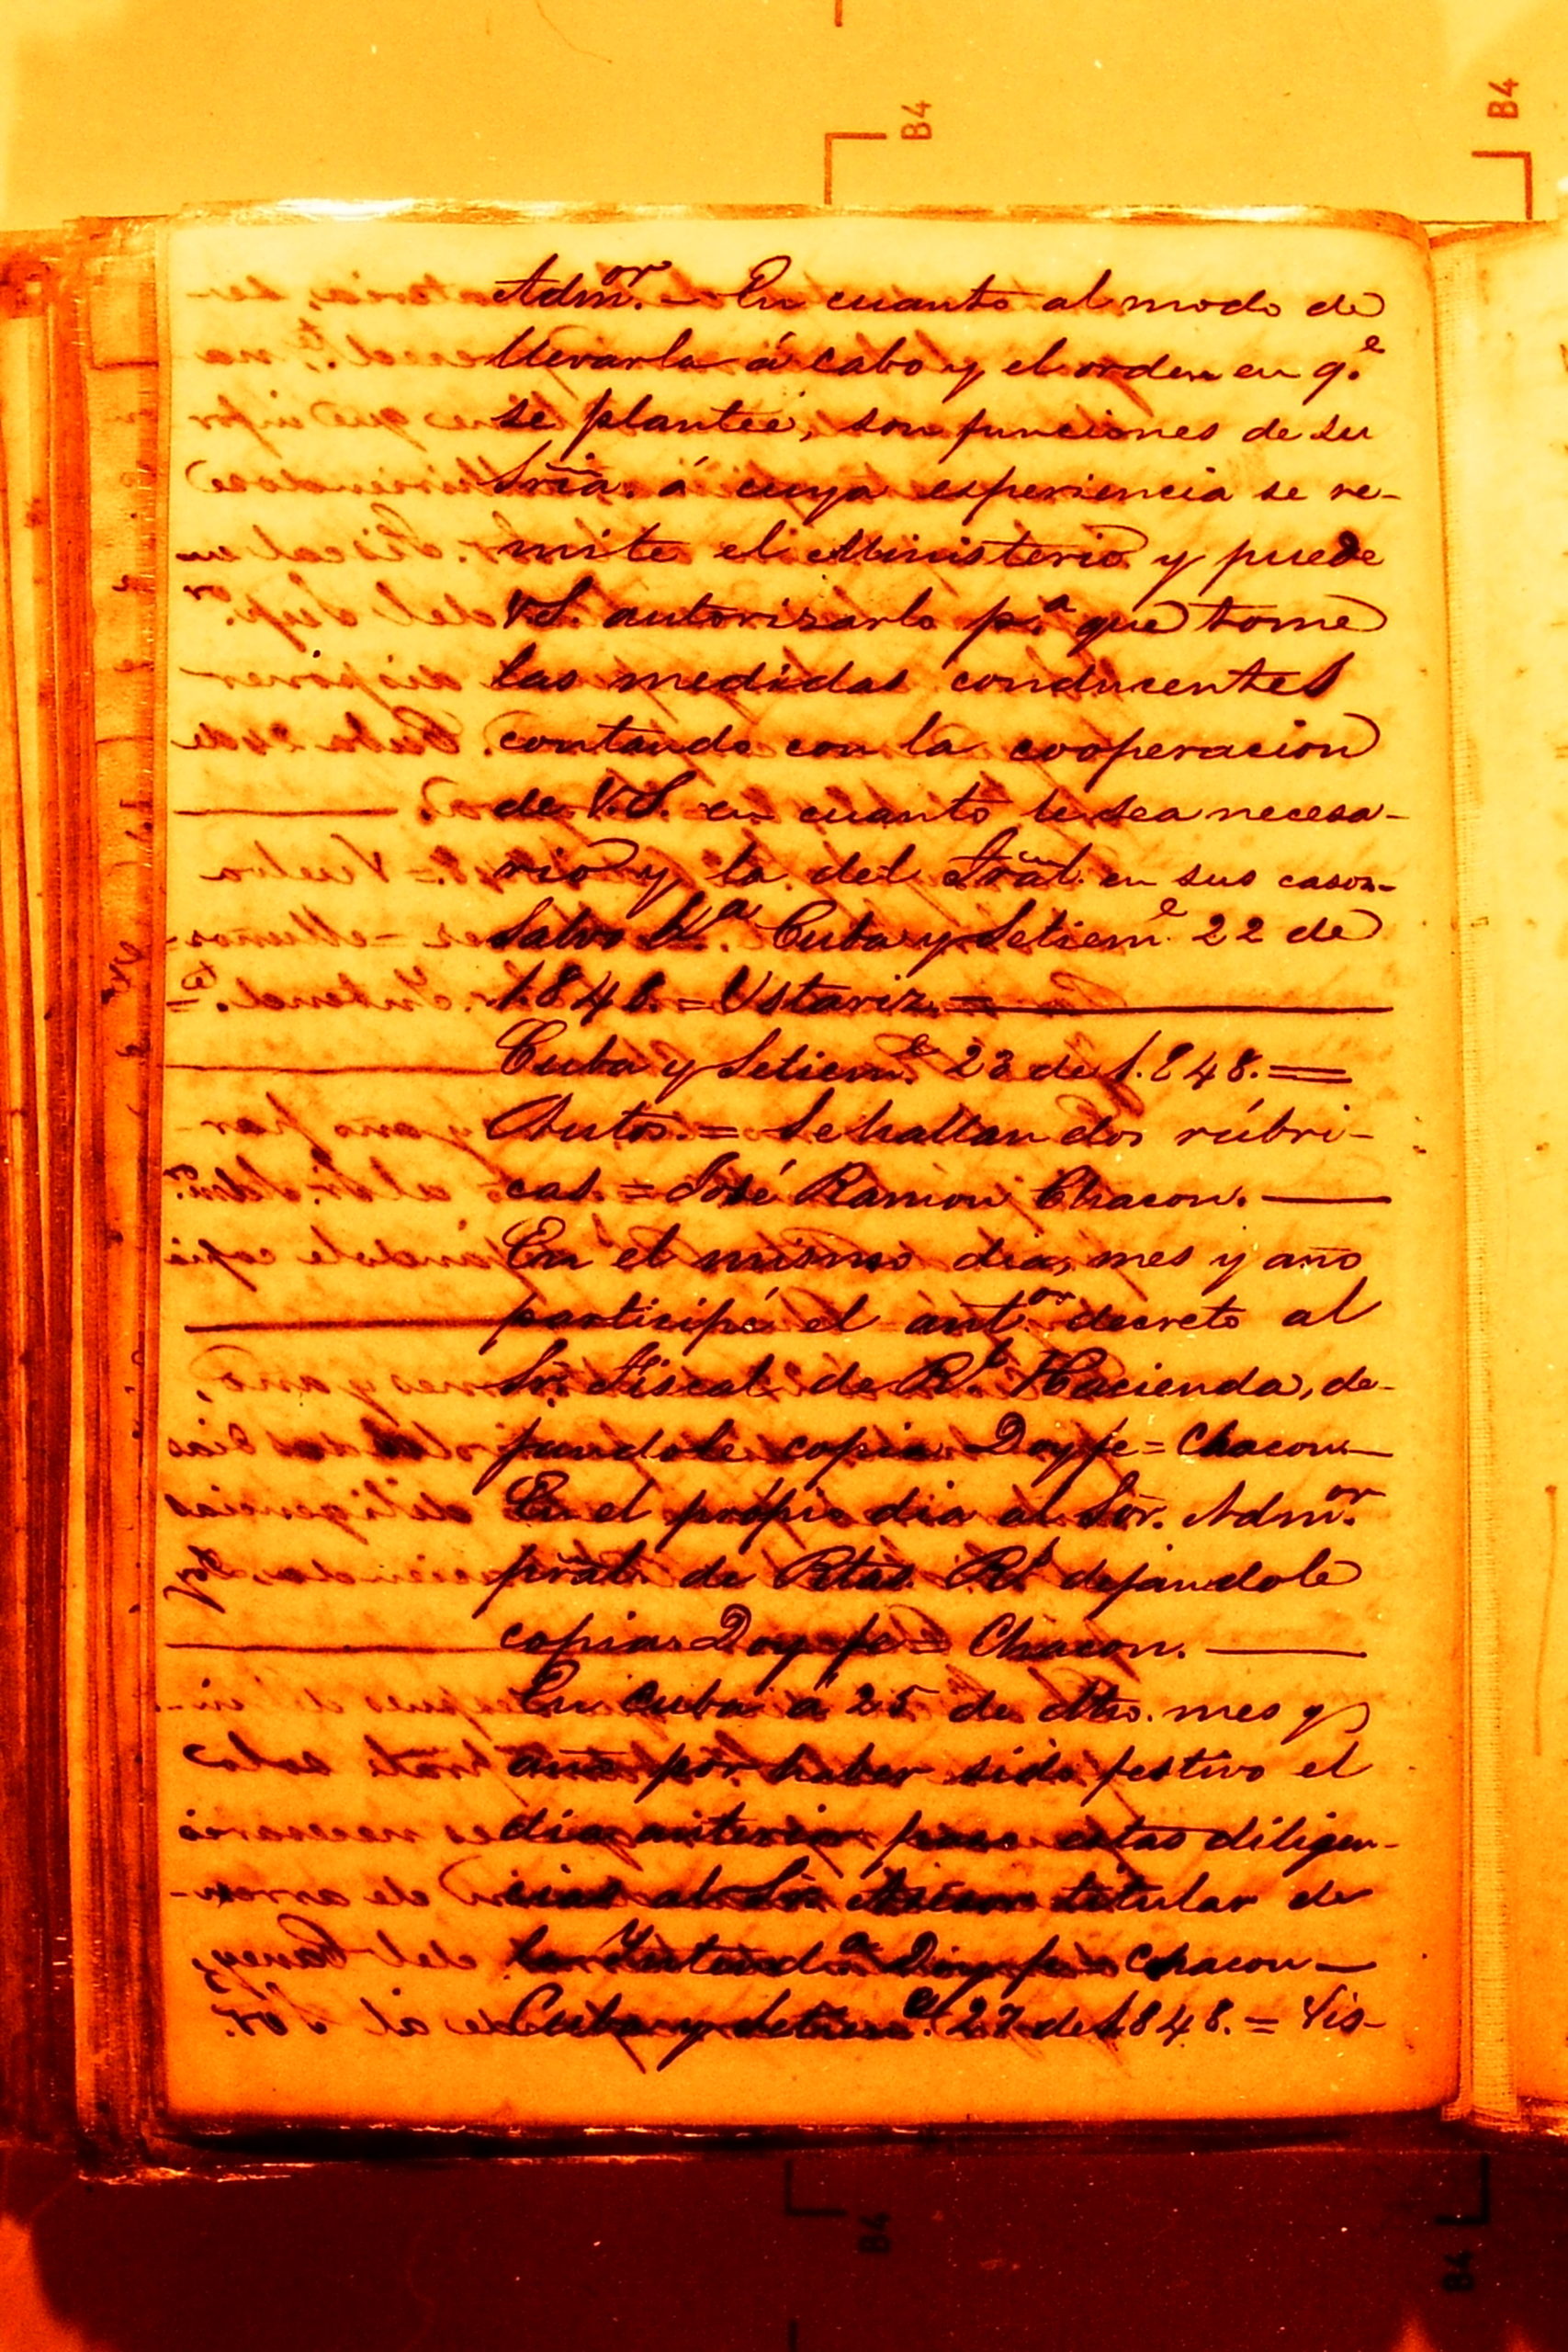 B4
B4
Admor. - En cuanto al modo de
llevarla á cabo y el orden en q.e
se plantée, son funciones de su
Sría. á cuya esperiencia se re-
mite el Ministerio y puede
V.S. autorisarlo p.a que tome
las medidas conducentes
contando con la cooperacion
de V.S. en cuanto le sea necesa-
rio y la del Tral. en sus casos.-
Salvo &a. Cuba y Setiem.e 22 de
1848. = Ustariz. =
Cuba y Setiem.e 23 de 1.848. =
Autos. = Se hallan dos rúbri-
cas. = José Ramon Chacon.
En el mismo dia, mes y año
participé el ant.or decreto al
Sr. Fiscal de R.l Hacienda, de-
jandole copia Doy fe = Chacon.-
En el própio dia al Sor. Admor.
pral. de Rtas. R.s dejandole
copia. Doy fe = Chacon.
En Cuba á 25 de dho. mes y
año por haber sido festivo el
dia anterior puse estas diligen-
cias al Sor. Asesor titular de
la Intend.a Doy fe = Chacon -
Cuba y Setiem.e 27 de 1848. = Vis-
B4
B4